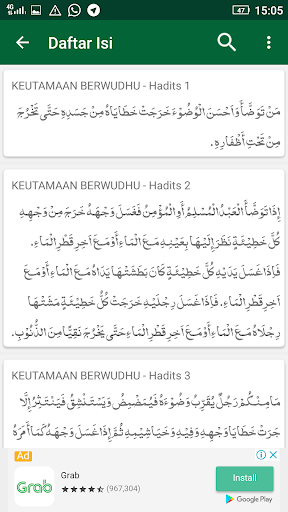 4G
47%
15:05
Daftar Isi
KEUTAMAAN BERWUDHU - Hadits 1
مَنْ تَوَضَّأَ وَاَحْسَنَ الْوُضُوْءَ خَرَجَتْ خَطَايَاهُ مِنْ جَسَدِهِ حَتَّى تَخْرُجَ
مِنْ تَحْتِ أَظْفَارِهِ.
KEUTAMAAN BERWUDHU - Hadits 2
إِذَا تَوَضَّأَ الْعَبْدُ الْمُسْلِمُ أَوِ الْمُؤْمِنُ فَغَسَلَ وَجْهَهُ خَرَجَ مِنْ وَجْهِهِ
كُلُّ خَطِيْئَةٍ نَظَرَ إِلَيْهَا بِعَيْنِهِ مَعَ الْمَاءِ أَوْ مَعَ اٰخِرِ قَطْرِ الْمَاءِ.
فَإِذَا غَسَلَ يَدَيْهِ كُلُّ خَطِيْئَةٍ كَانَ بَطَشَتْهَا يَدَاهُ مَعَ الْمَاءِ أَوْ مَعَ
اٰخِرِ قَطْرِ الْمَاءِ. فَإِذَا غَسَلَ رِجْلَيْهِ خَرَجَتْ كُلُّ خَطِيْئَةٍ مَشَتْهَا
رِجْلَاهُ مَعَ الْمَاءِ أَوْ مَعَ اٰخِرِ قَطْرِ الْمَاءِ حَتَّى يَخْرُجَ نَقِيًّا مِنَ الذُّنُوْبِ.
KEUTAMAAN BERWUDHU - Hadits 3
مَا مِنْكُمْ رَجُلٌ يُقَرِّبُ وَضُوْءَهُ فَيُمَضْمِضُ وَيَسْتَنْشِقُ فَيَنْتَثِرُ إِلَّا
جَرَتْ خَطَايَا وَجْهِهِ وَفِيْهِ وَخَيَاشِيْمِهِ ثُمَّ إِذَا غَسَلَ وَجْهَهُ كَمَا أَمَرَهُ
Ad
Grab
Grab
(967,304)
Install
Google Play